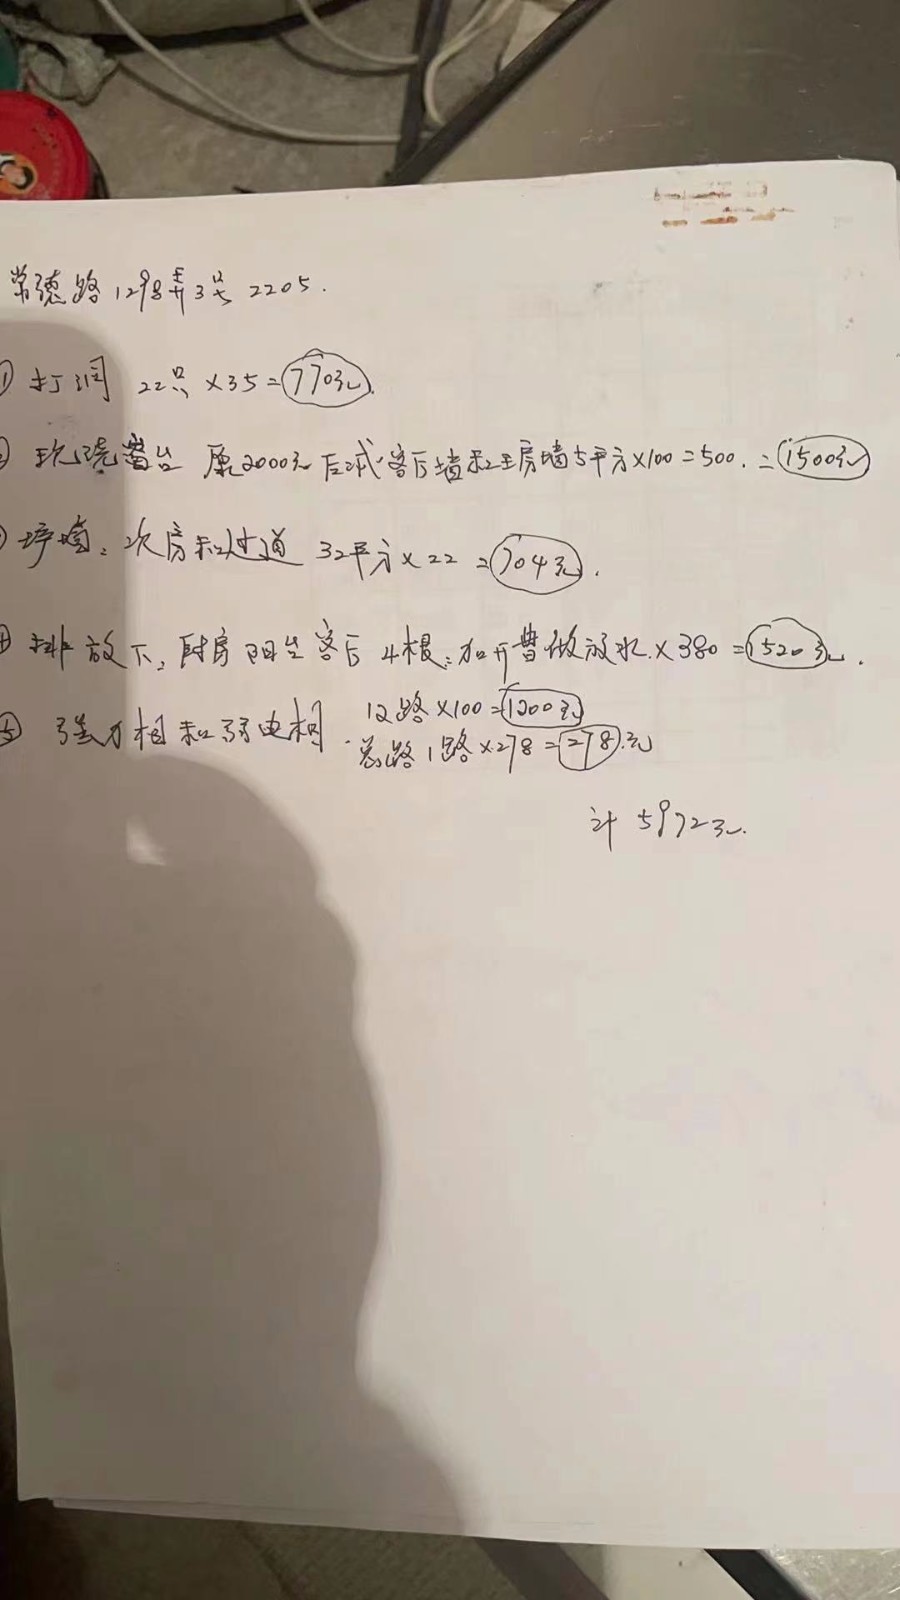 常德路1298弄3号2205.
① 打洞 22只×35=770元
② 现浇窗台 原2000元后减客厅墙和主房墙5平方×100=500.=1500元
墙:次房和过道 32平方×22=704元.
④ 排放下,厨房阳台客厅4根:加开 放水×380=1520元.
⑤ 强力相和弱电相 12路×100=1200元
总路1路×278=278.元
计 5972元.